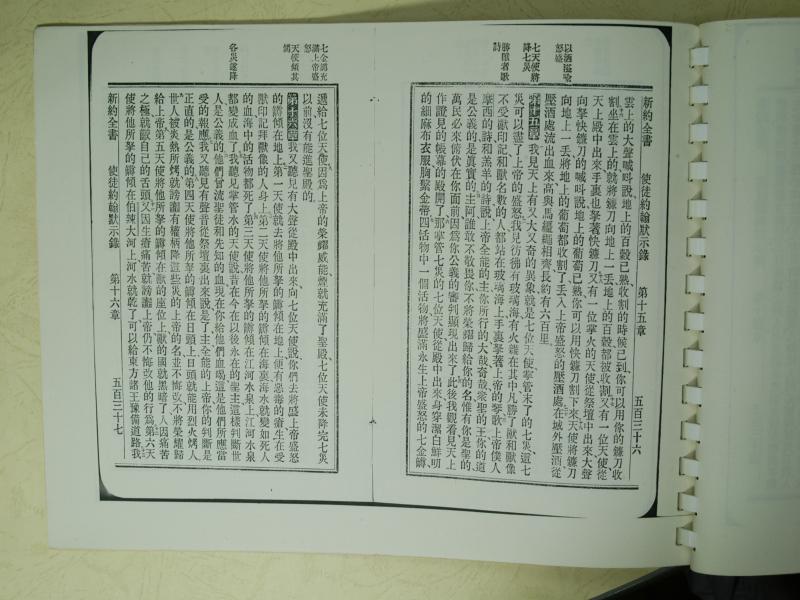 新約全書　使徒約翰默示錄　第十五章　五百三十六
以酒醡喻
怒酒
七天使將
降七災
勝獸者歌
詩
雲上的大聲喊叫說地上的百穀已熟收割的時候已到你可以用你的鐮刀收
割坐在雲上的就將鐮刀向地上一丢地上的百穀都被收割又有一位天使從
天上殿中出來手裏也拏著快鐮刀又有一位掌火的天使從祭壇中出來大聲
向拏快鐮刀的喊叫說地上的葡萄已熟你可以用快鐮刀割下來天使將鐮刀
向地上一丢將地上的葡萄都收割了丢入上帝盛怒的壓酒處在城外壓酒從
壓酒處流出血來高與馬纔繩相齊長約有六百里
第十五章我見天上有又大又奇的異象就是七位天使掌管末了的七災這七
災可以盡了上帝的盛怒我見彷彿有玻璃海有火雜在其中凡勝了獸和獸像
不受獸印記和獸名數的人都站在玻璃海上手裏拏著上帝的琴歌上帝僕人
摩西的詩和羔羊的詩說上帝全能的主你所行的大哉奇哉衆聖的王你的道
是公義的是眞實的主阿誰敢不敬畏你不將榮耀歸給你的名惟有你是聖的
萬民必來俯伏在你面前因爲你公義的審判顯現出來了此後我觀看見天上
作證見的帳幕的殿開了那掌管七災的七位天使從殿中出來身穿潔白鮮明
的細麻布衣服胸繫金帶四活物中一個活物將盛滿永生上帝盛怒的七金罇
七金罇充
滿上帝盛
怒
天使傾其
罇
各災遂降
遞給七位天使因爲上帝的榮耀威能聲就充滿了聖殿七位天使未降完七災
以前沒有能進聖殿的
第十六章我又聽見有大聲從殿中出來向七位天使說你們去將盛上帝盛怒
的罇傾在地上第一天使就去將他所拏的罇傾在地上便有惡毒的瘡生在受
獸印記拜獸像的人身上第二天使將他所拏的罇傾在海裏海水就變如死人
的血海中的活物都死了第三天使將他所拏的罇傾在江河水泉上江河水泉
都變成血了我聽見掌管水的天使說昔在今在以後永在的聖主這樣判斷世
人是公義的他們曾流聖徒和先知的血現在你給他們血喝這是他們所應當
受的報應我又聽見有聲音從祭壇裏出來說是了主全能的上帝你的判斷是
正直的是公義的第四天使將他所拏的罇傾在日頭上日頭就能用烈火烤人
世人被炎熱所烤就謗讟有權柄降這些災的上帝的名並不悔改不將榮耀歸
給上帝第五天使將他所拏的罇傾在獸的座位上獸的國就黑暗了人因痛苦
之極就齩自己的舌頭又因生瘡痛苦就謗讟上帝仍不悔改他的行爲第六天
使將他所拏的罇傾在伯辣大河上河水就乾了可以給東方諸王豫備道路我
新約全書　使徒約翰默示錄　第十六章　五百三十七